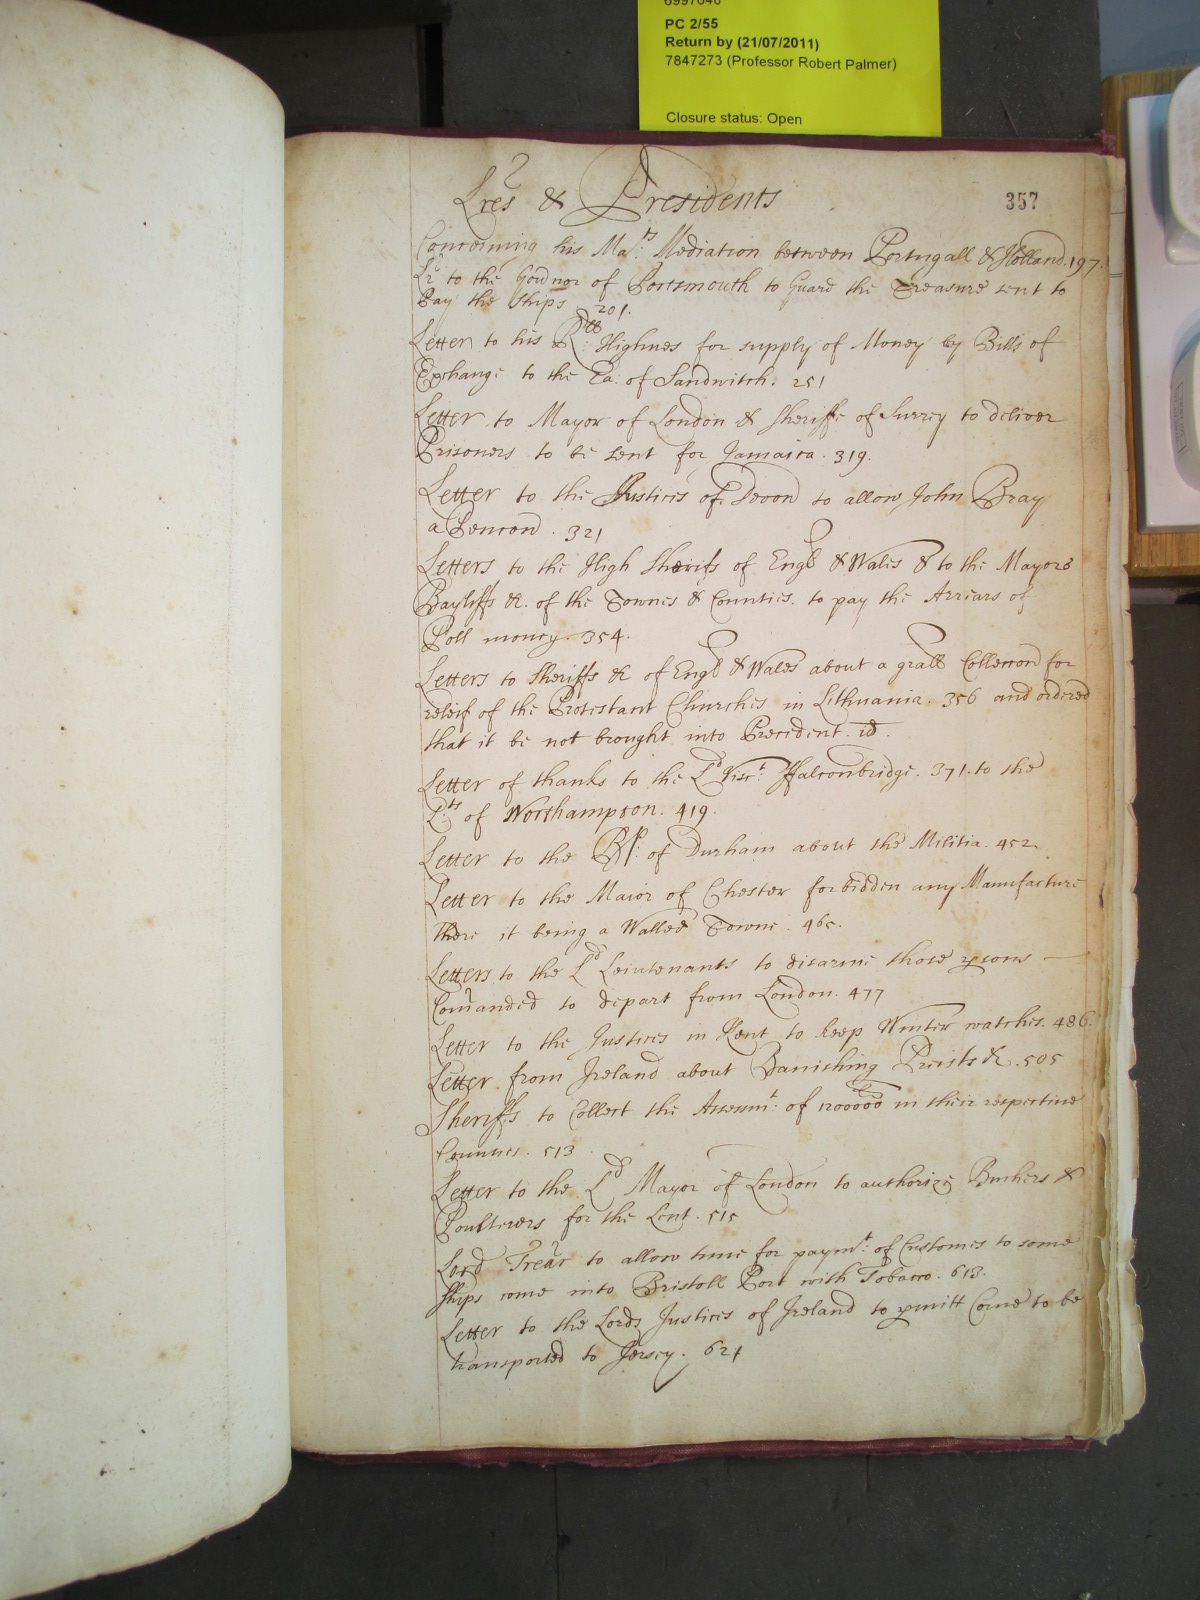 6997646
PC 2/55
Return by (21/07/2011)
7847273 (Professor Robert Palmer)
Closure status: Open
Lres & Presidents
357
Concerning his Ma:ts Mediation between Portugall & Holland. 197.
Lr to the Govdnor of Portsmouth to Guard the Treasure sent to
Pay the Ships 201.
Letter to his R:ll Highnes for supply of Money by Bills of
Exchange to the Ea: of Sandwitch: 251
Letter to Mayor of London & Sheriffe of Surrey to deliver
Prisoners to be sent for Jamaica. 319.
Letter to the Justices of Devon to allow John Bray
a Pencon. 321
Letters to the High Sherifs of Engld & Wales & to the Mayors
Bayliffs &c. of the Townes & Counties. to pay the Arrears of
Poll money. 354.
Letters to Sheriffs &c of Engld & Wales about a grall Colleccon for
releif of the Protestant Churches in Lithuania. 356 and ordered
that it be not brought into Precident. id.
Letter of thanks to the Ld Visct: Ffalconbridge. 371. to the
L:ts of Northampton. 419.
Letter to the Bp: of Durham about the Militia. 452.
Letter to the Maior of Chester forbidden any Manufacture
there it being a Walled Towne. 465.
Letters to the Ld Leiutenants to disarme those psons
Comanded to depart from London. 477
Letter to the Justices in Kent to keep Winter watches. 486.
Letter from Ireland about Banishing Preists &c. 505
Sheriffs to Collect the Assessmt: of 1200000 in their respective
Counties. 513
Letter to the Ld Mayor of London to authorize Buchers &
Poulterers for the Lent. 515
Lord Trear to allow time for paymt: of Customes to some
Ships come into Bristoll Port with Tobacco. 613.
Letter to the Lords Justices of Ireland to pmitt Corne to be
transported to Jersey. 621